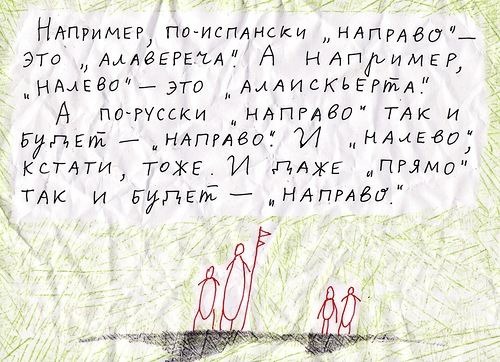 Например, по-испански „направо“ —
это „алавереча“. А например,
„налево“ — это „алаискьерта“.
А по-русски „направо“ так и
будет — „направо“. И „налево“,
кстати, тоже. И даже „прямо“
так и будет — „направо.“